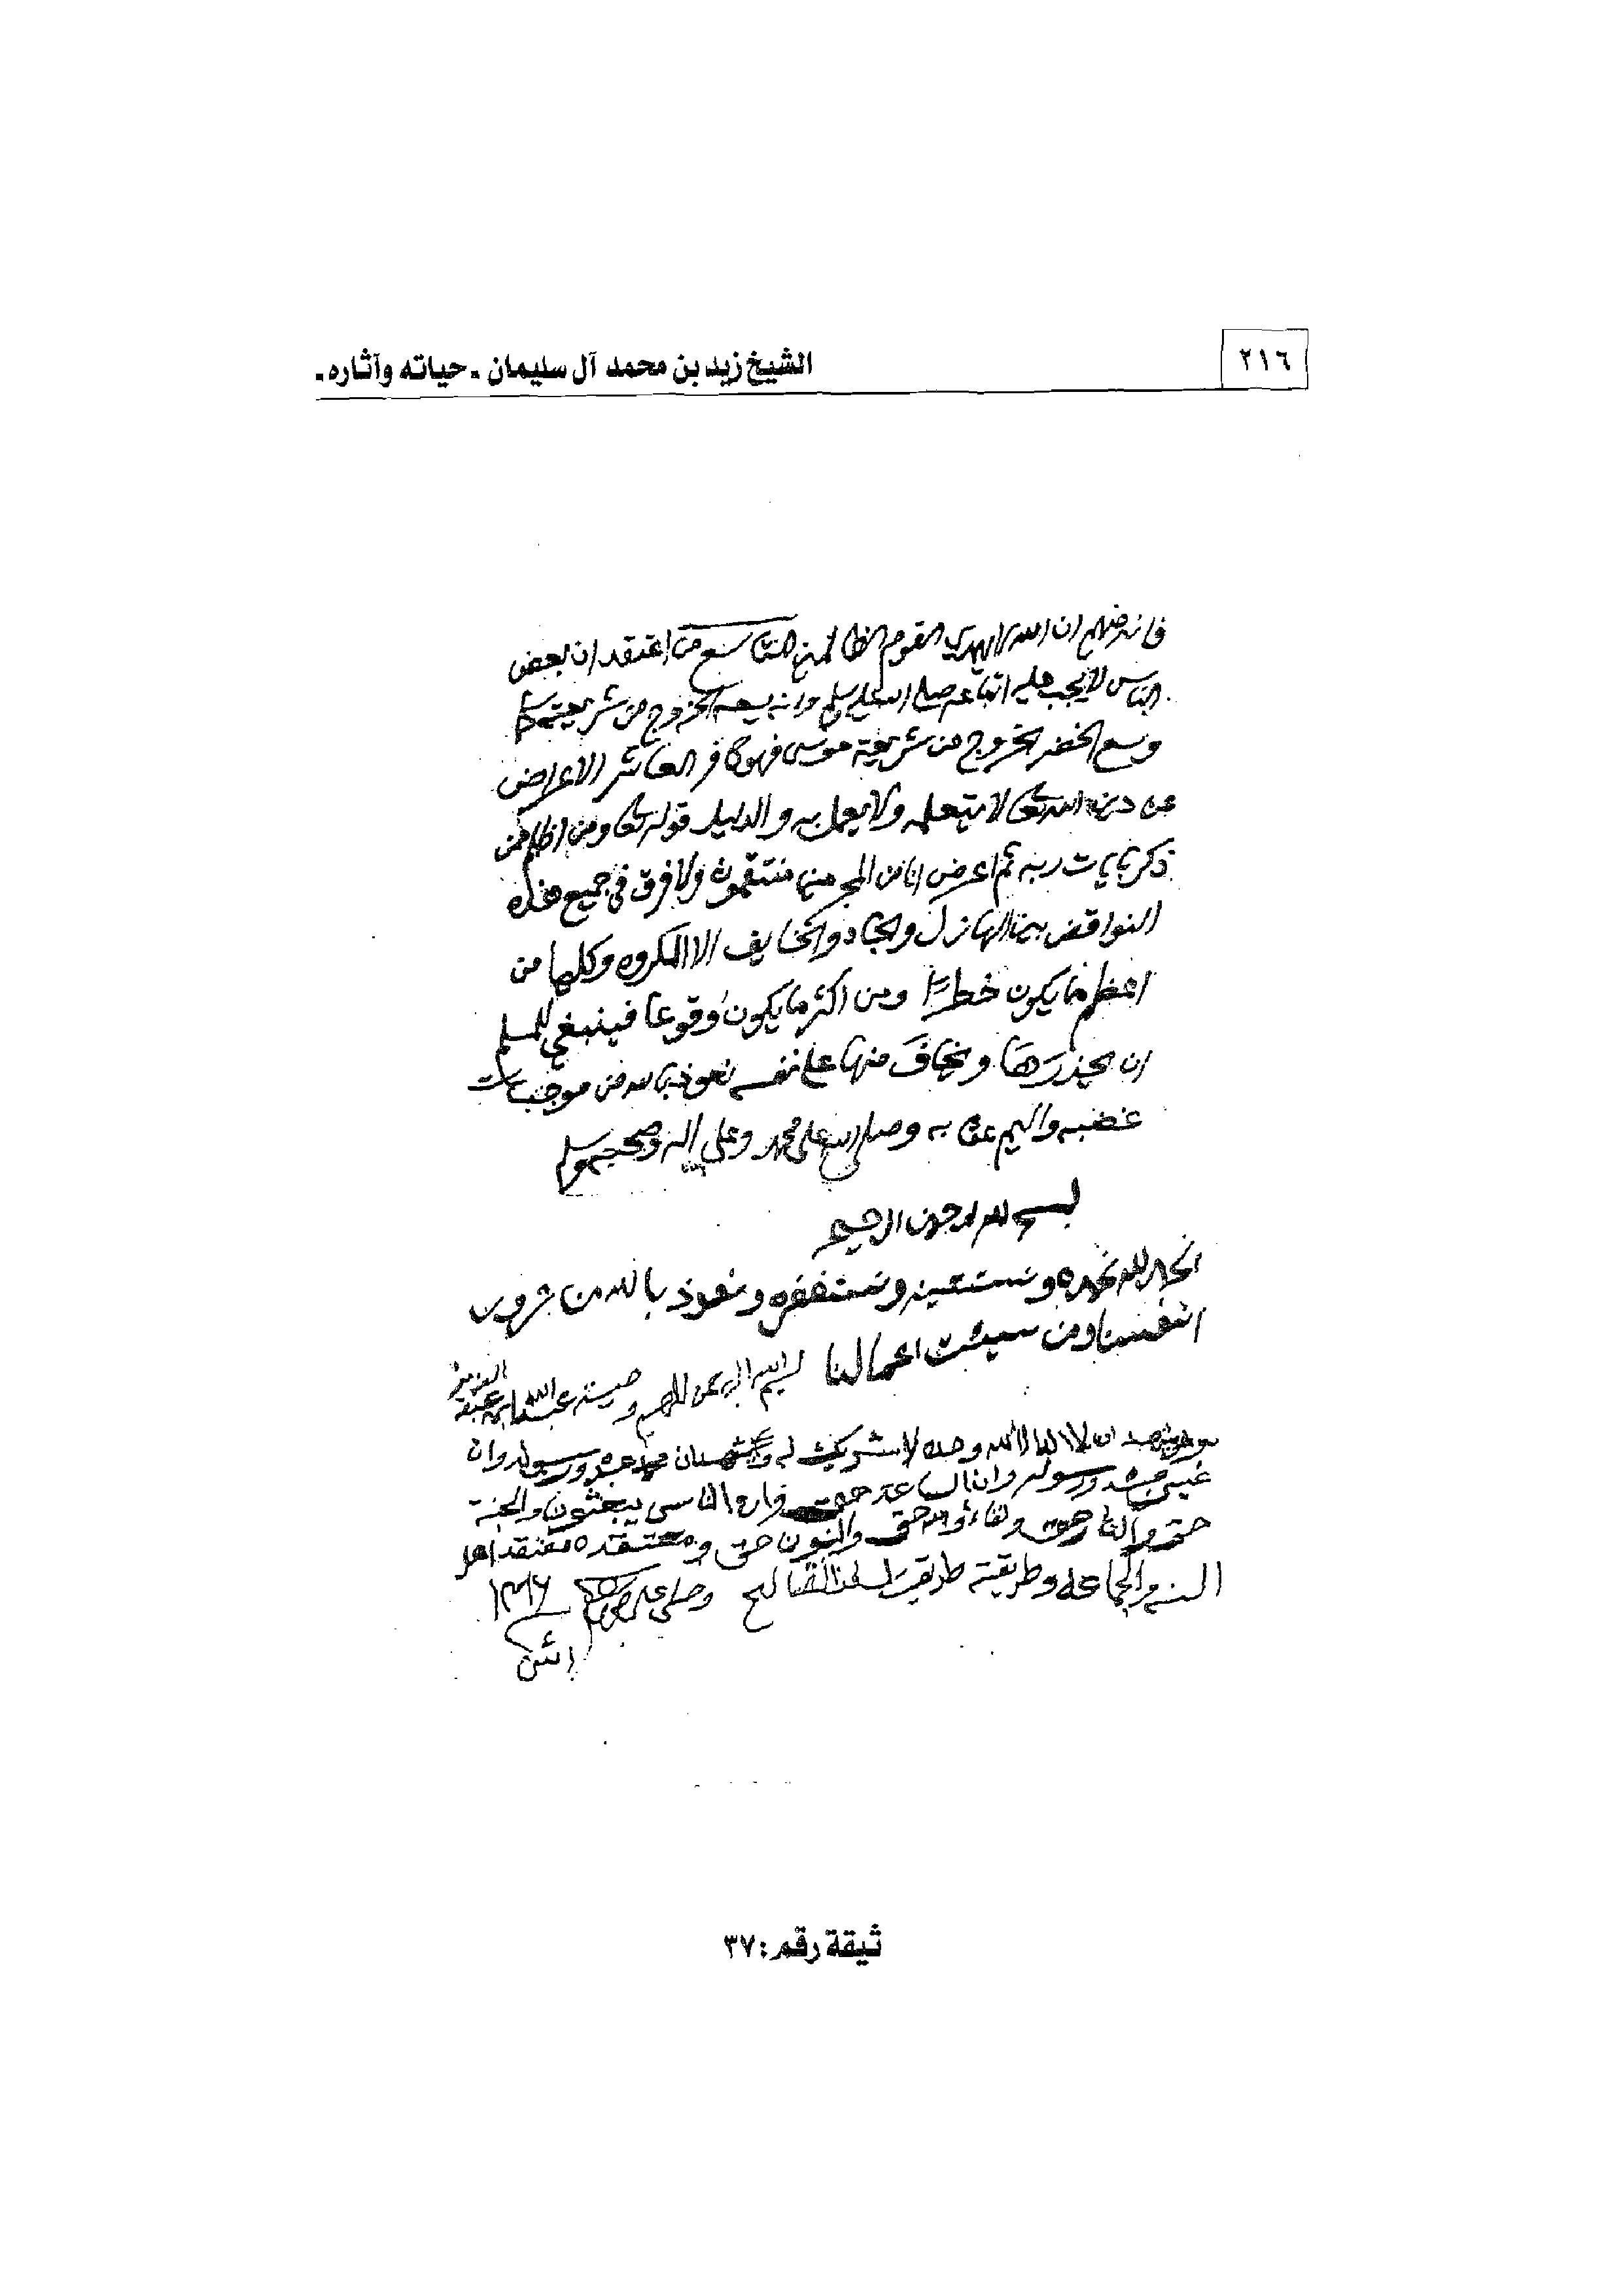 ٢١٦
الشيخ زيد بن محمد آل سليمان - حياته وآثاره -
فانه منهم ان الله لا يهدي القوم الظالمين التاسع من اعتقد ان بعض
الناس لا يجب عليه اتباعه صلى الله عليه وسلم وانه يسعه الخروج من شريعته كما
وسع الخضر الخروج من شريعة موسى فهو كافر العاشر الاعراض
عن دين الله تعالى لا يتعلمه ولا يعمل به والدليل قوله تعالى ومن اظلم ممن
ذكر بايات ربه ثم اعرض انا من المجرمين منتقمون ولا فرق في جميع هذه
النواقض بين الهازل والجاد والخايف الا المكره وكلها من
اعظم ما يكون خطرًا ومن اكثر ما يكون وقوعا فينبغي للمسلم
ان يحذرها ويخاف منها على نفسه نعوذ بالله من موجبات
غضبه واليم عقابه وصلى الله على محمد وعلى اله وصحبه وسلم
بسم الله الرحمن الرحيم
الحمد لله نحمده ونستعينه ونستغفره ونعوذ بالله من شرور
انفسنا ومن سيئت اعمالنا بسم الله الرحمن الرحيم وصية عبدالله ابن عبد
العزيز
يشهد ان لا اله الا الله وحده لا شريك له ويشهد ان محمد عبده ورسوله وان
عيسى عبده ورسوله وان الساعة حق وان الناس يبعثون والجنة
حق والنار حق ولقاء الله حق والنبيون حق ومعتقده معتقد اهل
السنه والجماعة وطريقته طريقة السلف الصالح وصلى على محمد ١٣١٦